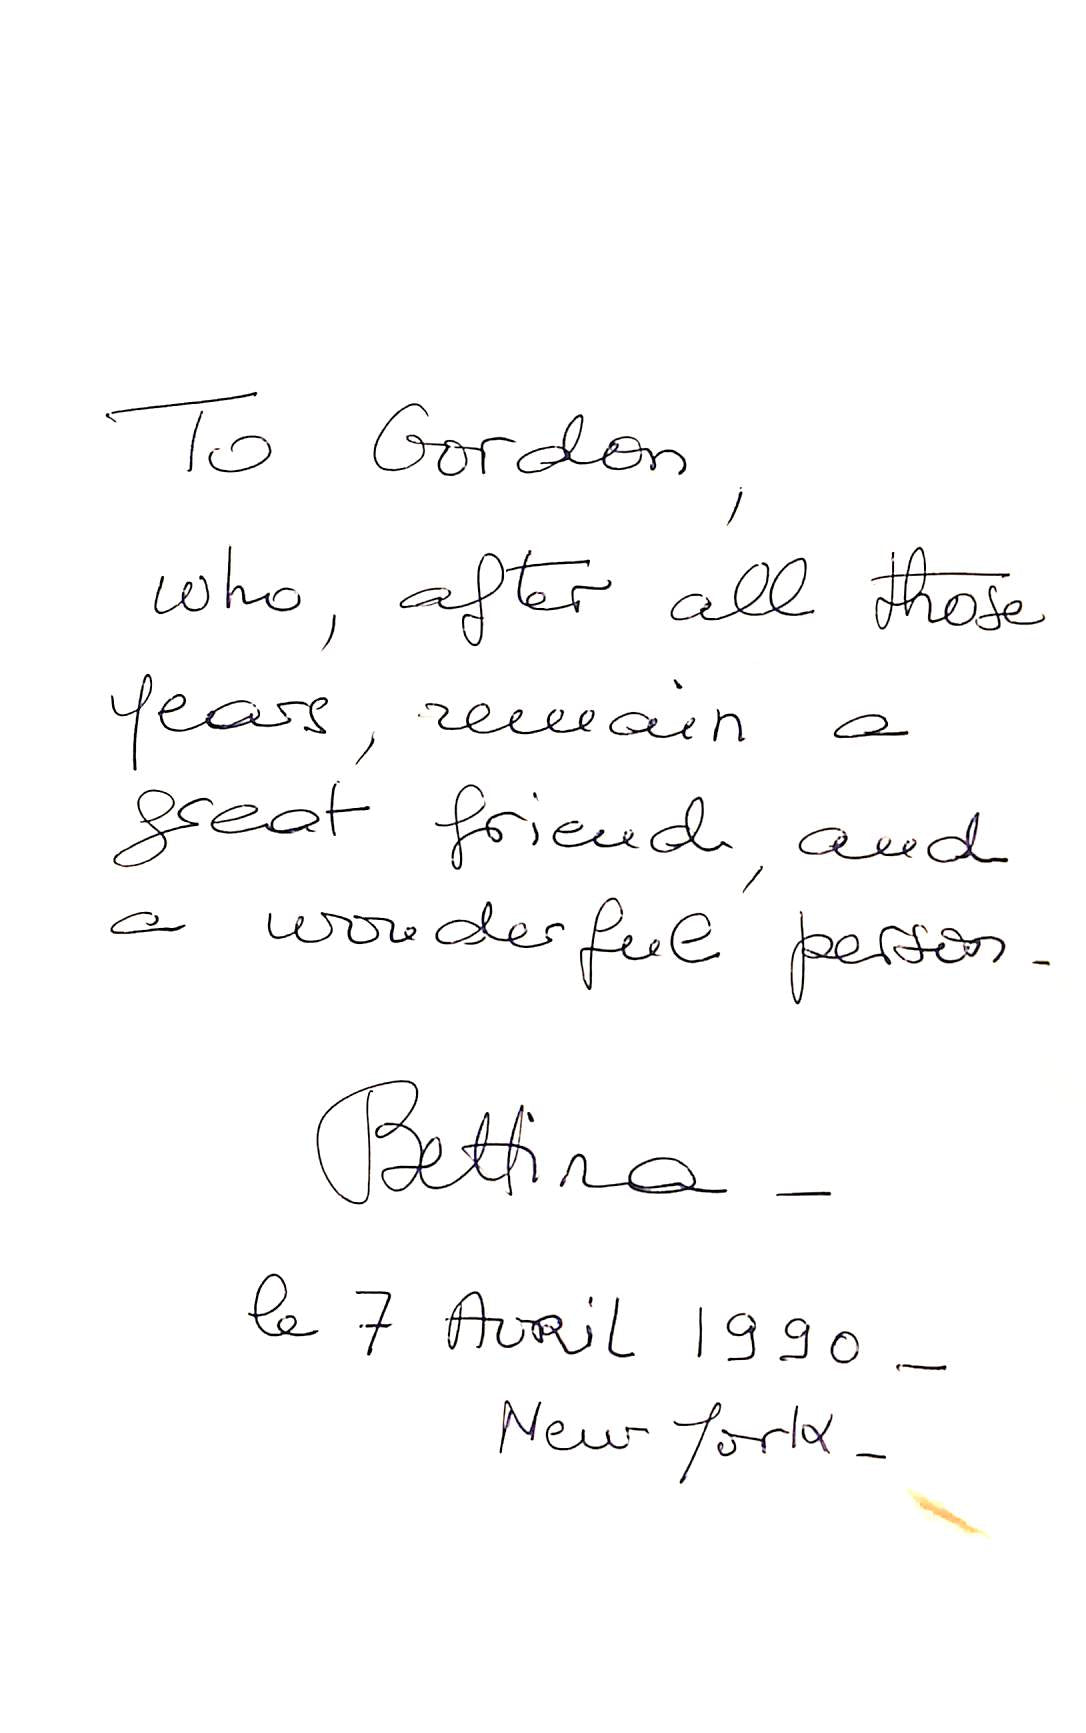 To Gordon,
who, after all those
years, remain a
great friend, and
a wonderful person -
Bettina -
le 7 Avril 1990 -
New York -